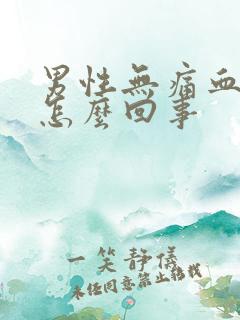 男性無痛血
怎麼回事
一笑靜儀
未经同意禁止转载